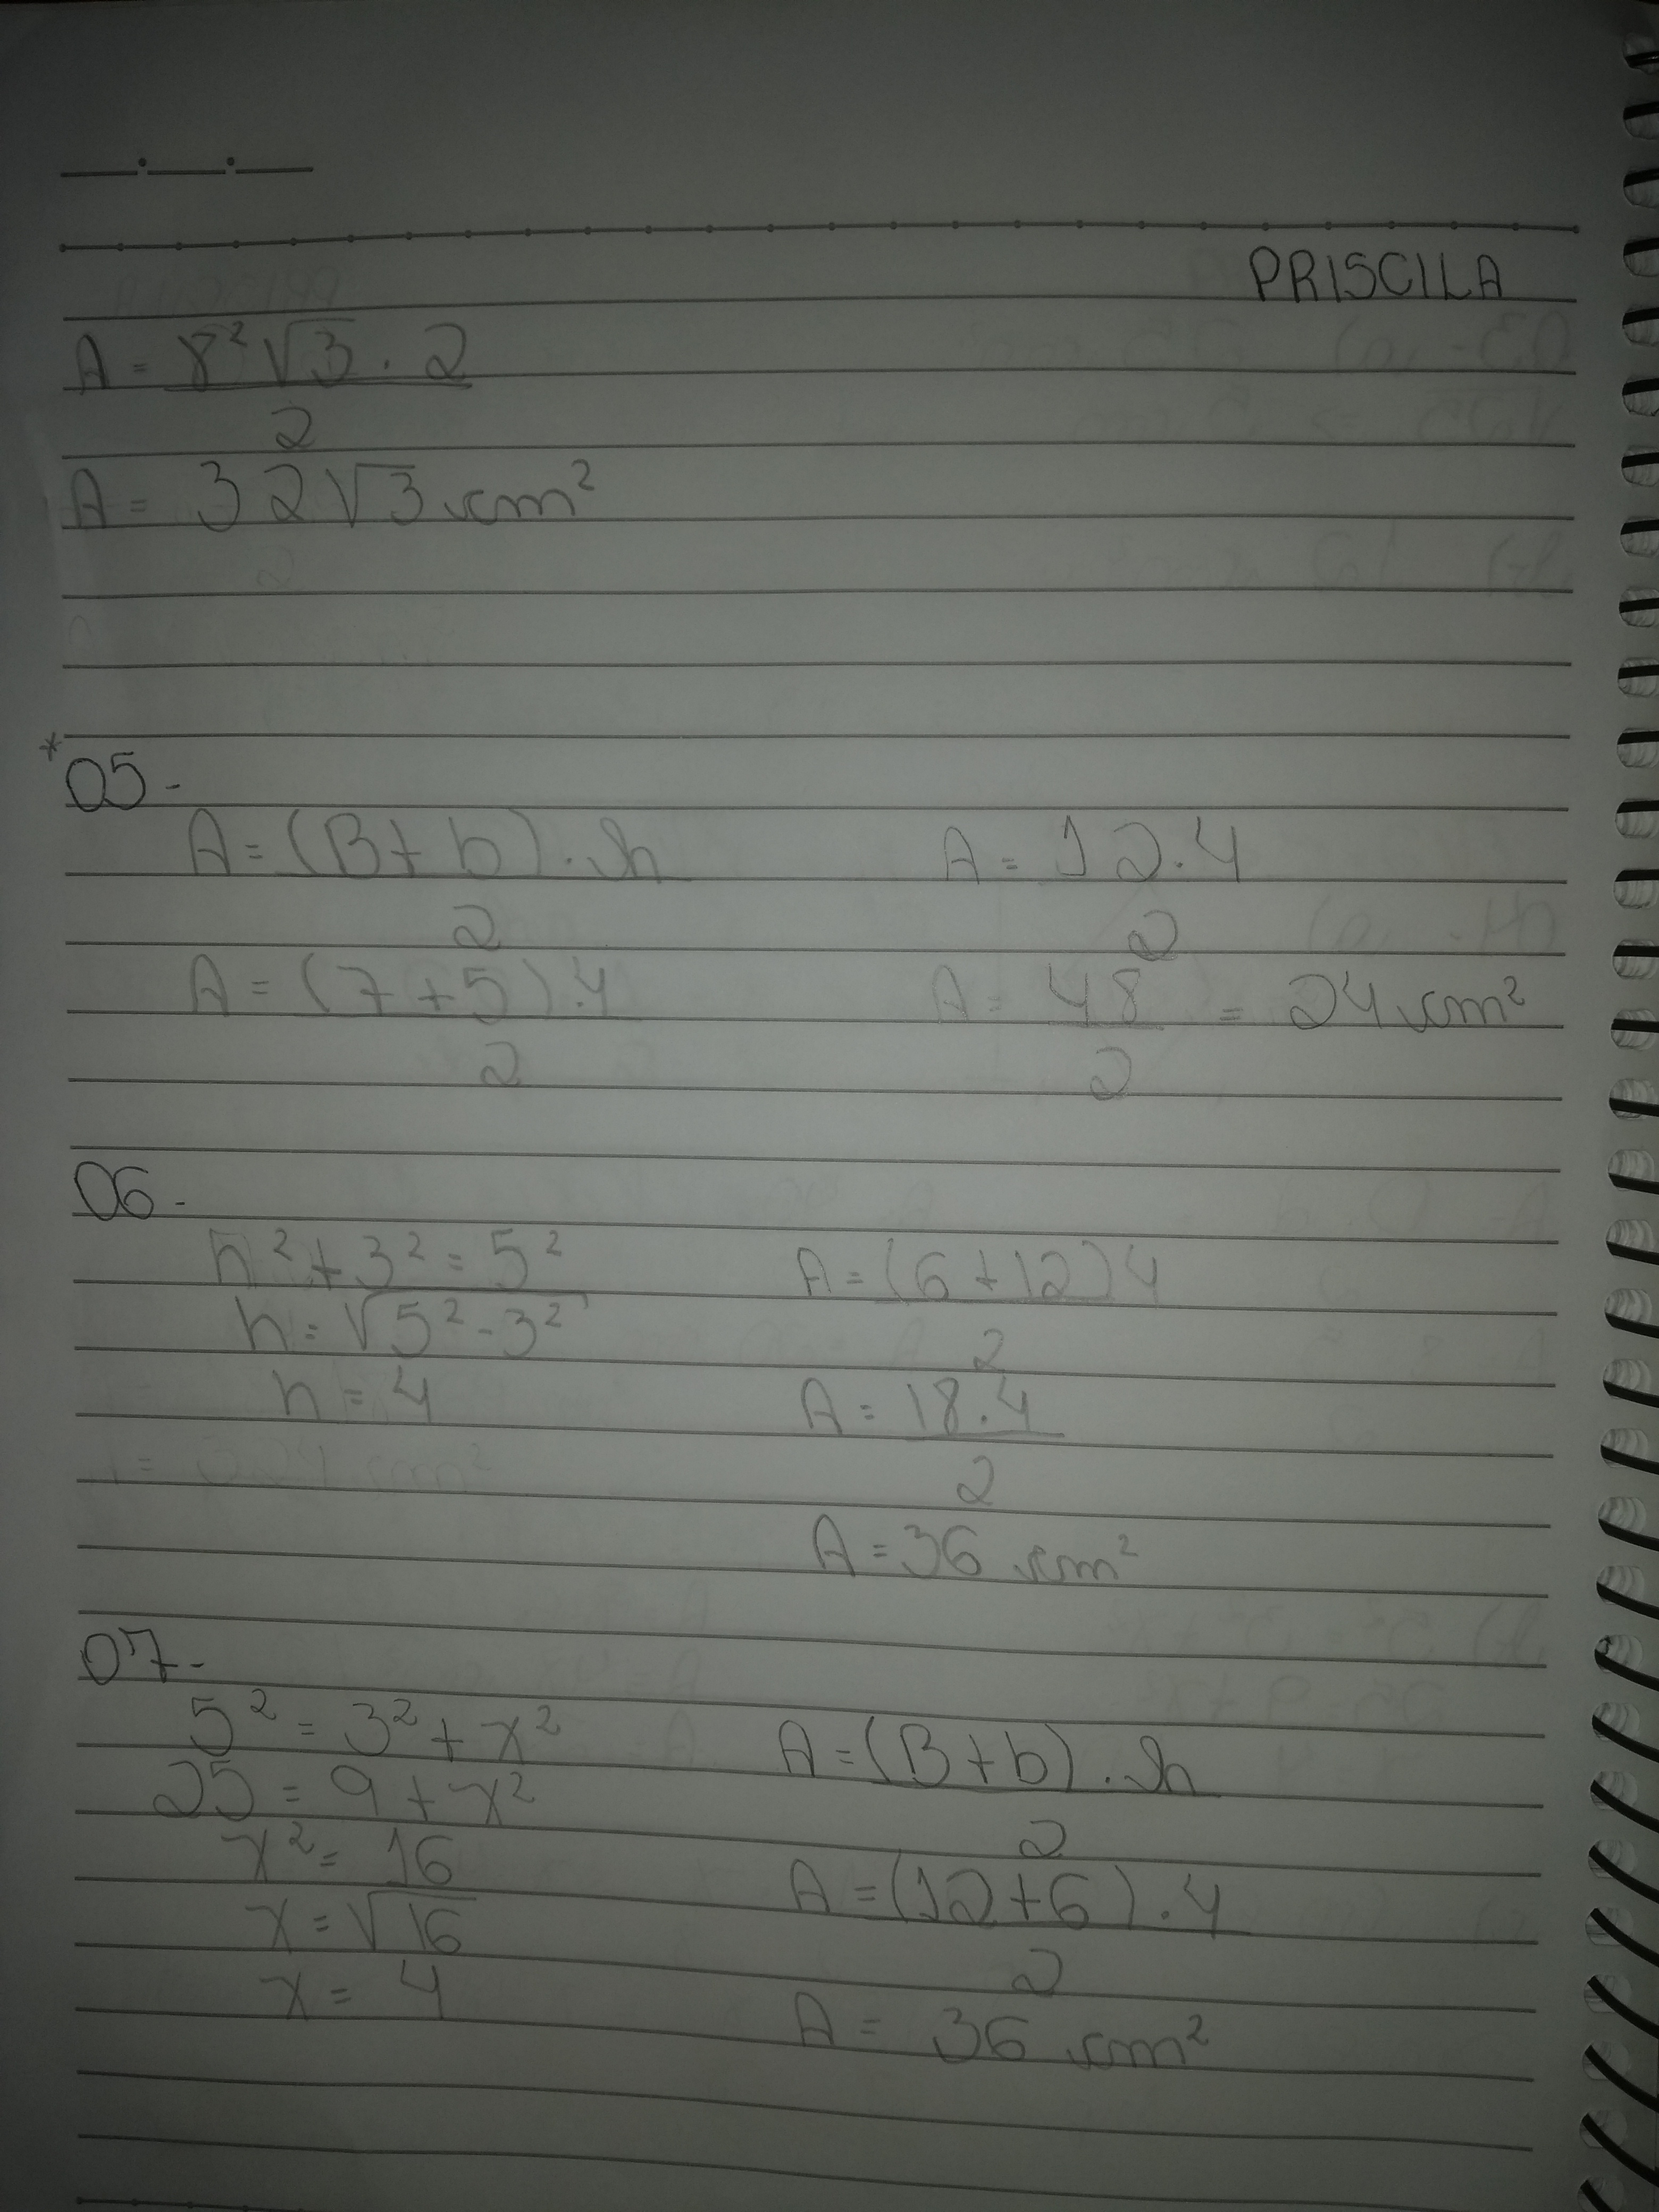 PRISCILA
A = 8²√3 . 2
2
A = 32√3 cm²
*05-
A = (B + b) . h
2
A = (7 + 5) . 4
2
A = 12 . 4
2
A = 48 = 24 cm²
2
06-
h² + 3² = 5²
h = √5² - 3²
h = 4
A = (6 + 12) 4
2
A = 18 . 4
2
A = 36 cm²
07-
5² = 3² + x²
25 = 9 + x²
x² = 16
x = √16
x = 4
A = (B + b) . h
2
A = (12 + 6) . 4
2
A = 36 cm²